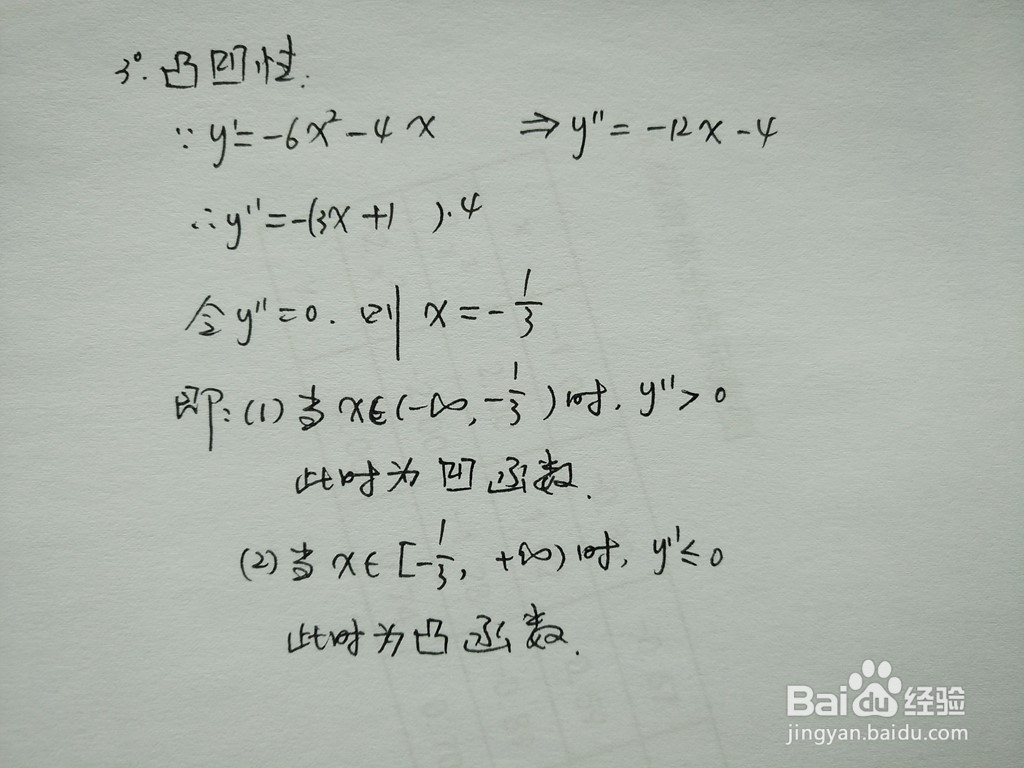 3°. 凸凹性.
∵ y'=-6x²-4x ⇒ y''=-12x-4
∴ y''=-(3x+1 )·4
令 y''=0. 则 x=-1/3
即: (1) 当 x∈(-∞,-1/3) 时, y''>0
此时为凹函数.
(2) 当 x∈[-1/3, +∞) 时, y''≤0
此时为凸函数.
Baidu经验
jingyan.baidu.com